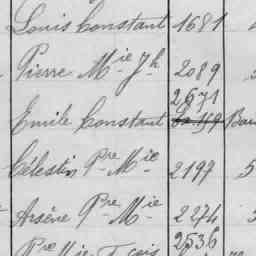 Louis Constant 1681
Pierre Mie Jh 2089
2671
Emile Constant
Célestin Pre Mie 2197 5
Arsène Pre Mie 2274
2536
Pre Mie Frçois